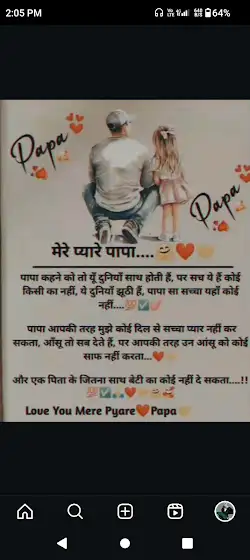 2:05 PM 64%
Papa
Papa
मेरे प्यारे पापा....😊❤️
पापा कहने को तो यूँ दुनियाँ साथ होती हैं, पर सच ये हैं कोई
किसी का नहीं, ये दुनियाँ झूठी हैं, पापा सा सच्चा यहाँ कोई
नहीं....💯✅
पापा आपकी तरह मुझे कोई दिल से सच्चा प्यार नहीं कर
सकता, आँसू तो सब देते हैं, पर आपकी तरह उन आंसू को कोई
साफ नहीं करता...❤️
और एक पिता के जितना साथ बेटी का कोई नहीं दे सकता....!!
💯✅🙏❤️
Love You Mere Pyare❤️Papa